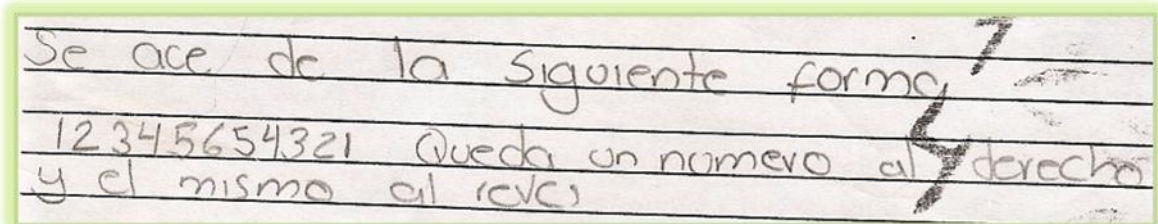 Se ace de la siguiente forma
12345654321 Queda un numero al derecho
y el mismo al reves